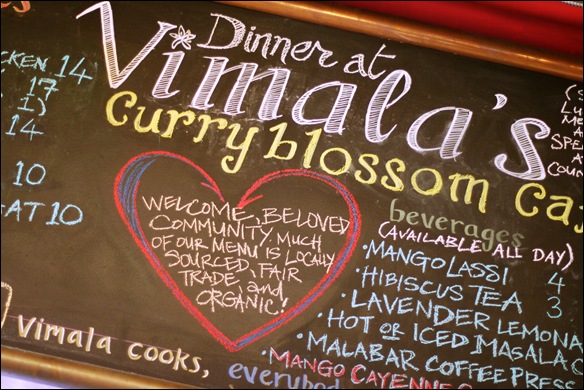 Dinner at
Vimala's
curryblossom ca
CKEN 14
17
14
10
AT 10
WELCOME, BELOVED
COMMUNITY. MUCH
OF OUR MENU IS LOCALLY
SOURCED, FAIR
TRADE, and
ORGANIC!
beverages
(AVAILABLE ALL DAY)
•MANGO LASSI 4
•HIBISCUS TEA 3
•LAVENDER LEMONA
•HOT OR ICED MASALA C
•MALABAR COFFEE PRES
•MANGO CAYENNE
Vimala cooks,
everybod